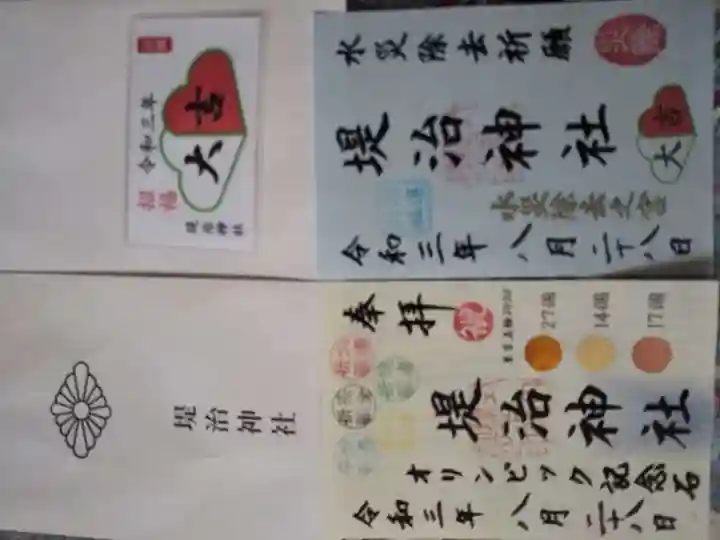 大吉
令和三年
招福
堤治神社
水災除去祈願
堤治神社
大吉
水災除去之宮
令和三年八月二十八日
堤治神社
奉拝
祝
東京五輪2020
27個
14個
17個
堤治神社
オリンピック記念石
令和三年八月二十八日